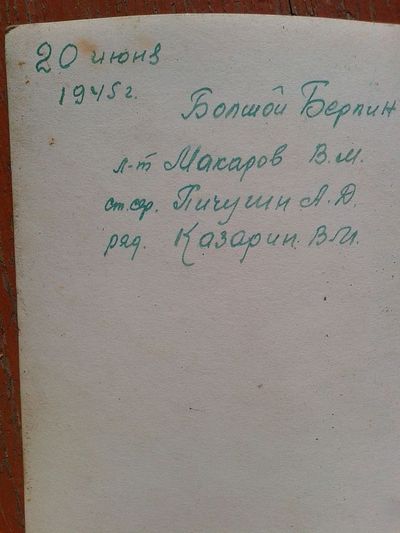 20 июня
1945 г.
Болшой Берлин
л-т Макаров В.М.
ст.сер. Пичугин А.Д.
ряд. Казарин В.И.